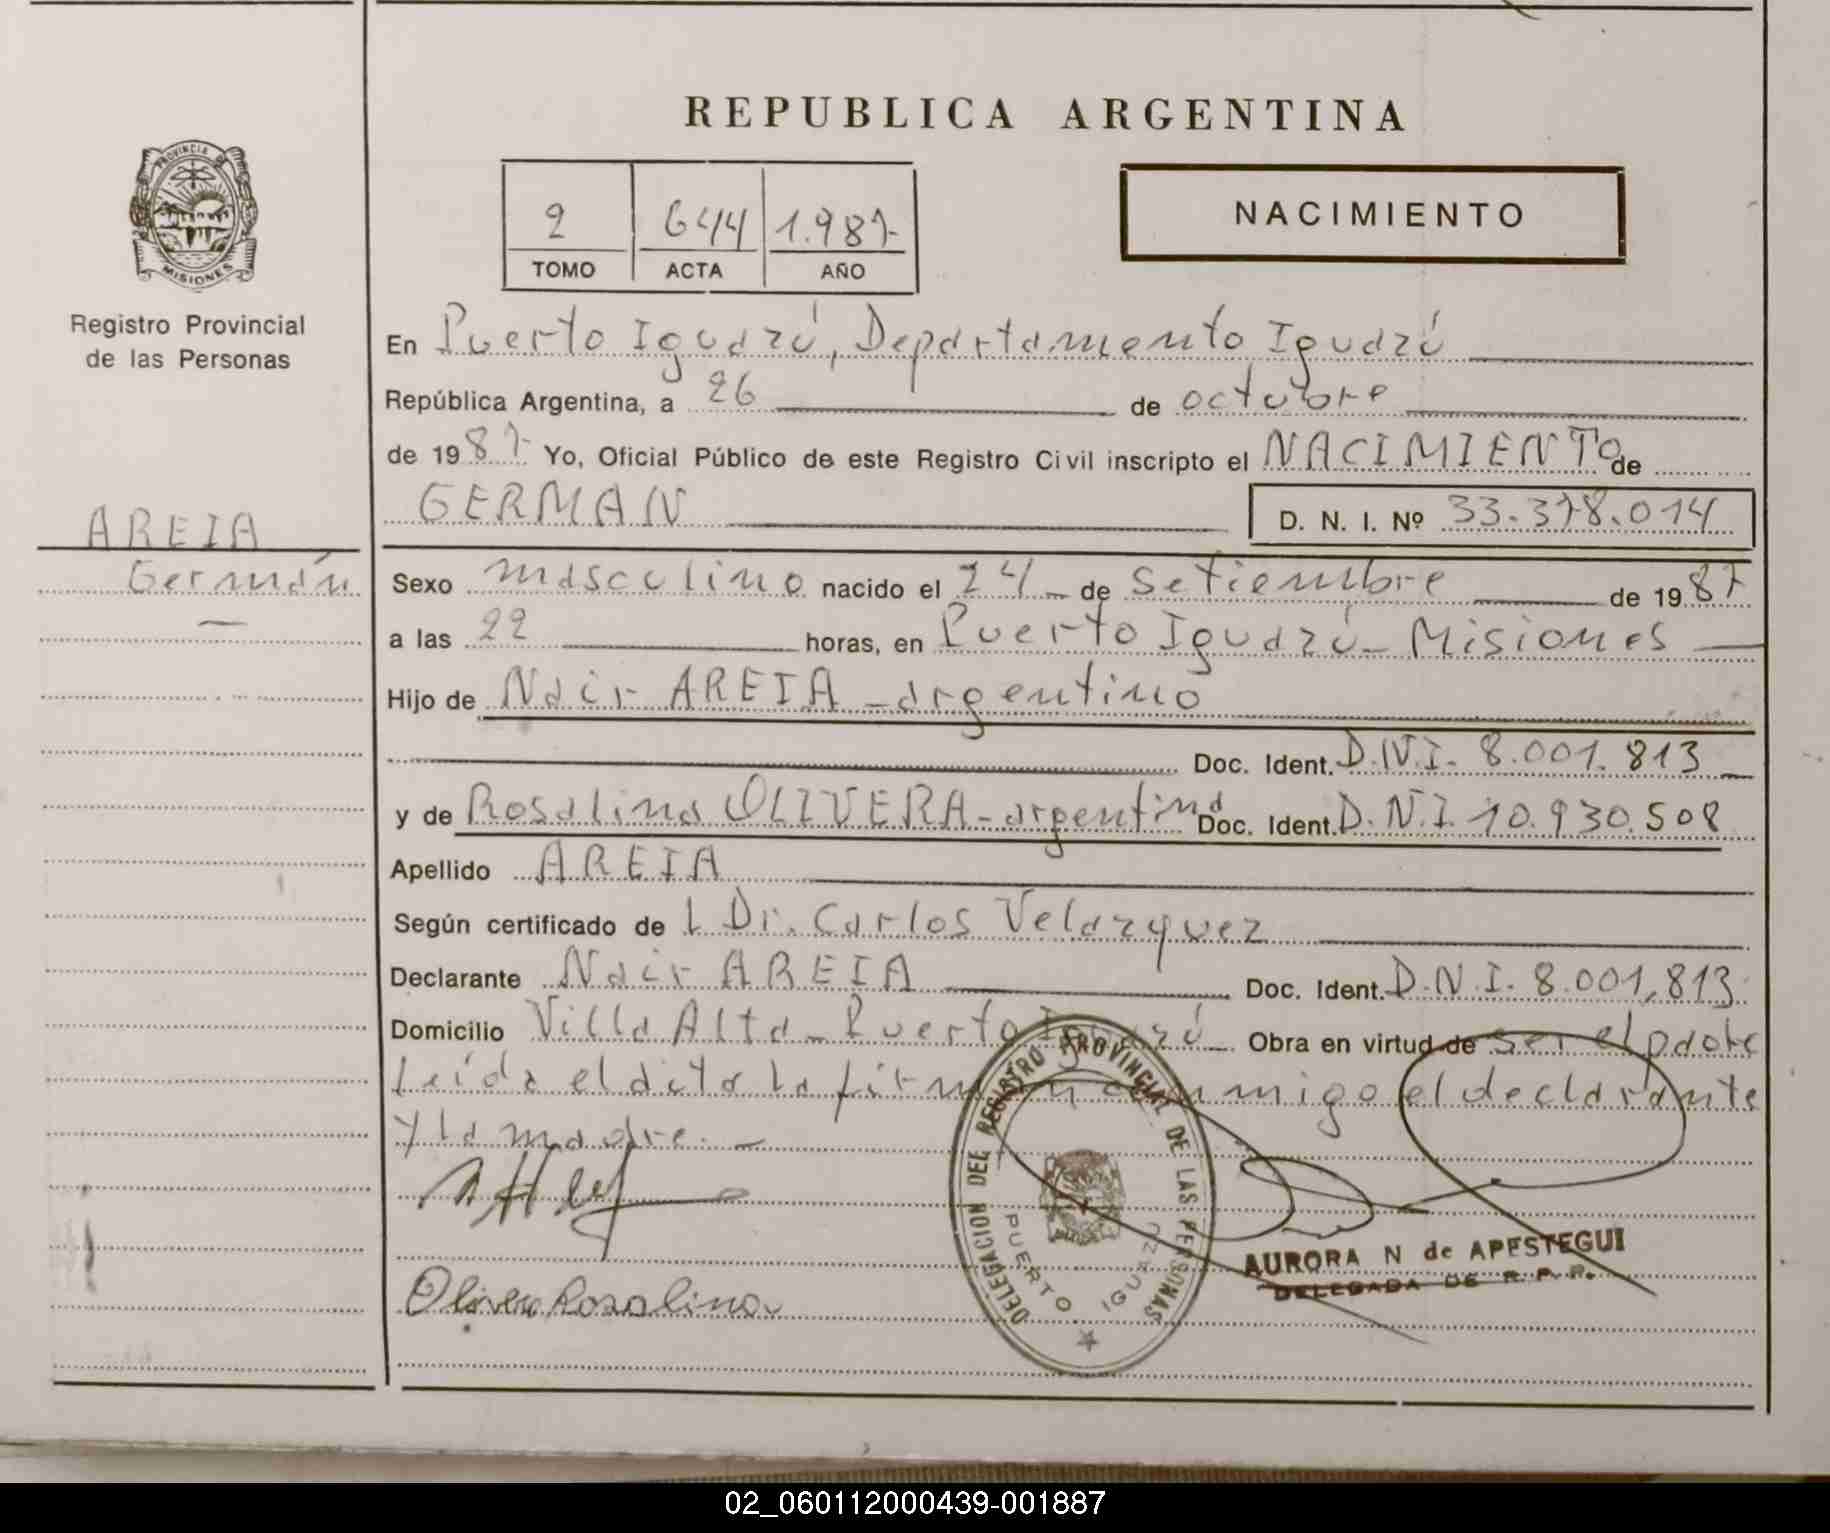 REPUBLICA ARGENTINA
PROVINCIA DE
MISIONES
Registro Provincial
de las Personas
2 644 1.987
TOMO ACTA AÑO
NACIMIENTO
En Puerto Iguazú, Departamento Iguazú
República Argentina, a 26 de octubre
de 1987 Yo, Oficial Público de este Registro Civil inscripto el NACIMIENTO de
GERMAN D. N. I. Nº 33.378.014
AREIA
Germán
Sexo masculino nacido el 24 de Setiembre de 1987
a las 22 horas, en Puerto Iguazú - Misiones
Hijo de Nair AREIA - argentino
Doc. Ident. D.N.I. 8.001.813
y de Rosalina OLIVERA - argentina Doc. Ident. D.N.I. 10.930.508
Apellido AREIA
Según certificado de l Dr. Carlos Velazquez
Declarante Nair AREIA Doc. Ident. D.N.I. 8.001.813
Domicilio Villa Alta - Puerto Iguazú Obra en virtud de ser el padre
Leída el acta la firman conmigo el declarante
y la madre. -
DELEGACION DEL REGISTRO PROVINCIAL DE LAS PERSONAS
PUERTO IGUAZU
AURORA N de APESTEGUI
DELEGADA DE R. P. P.
Olivera Rosalina
02_060112000439-001887